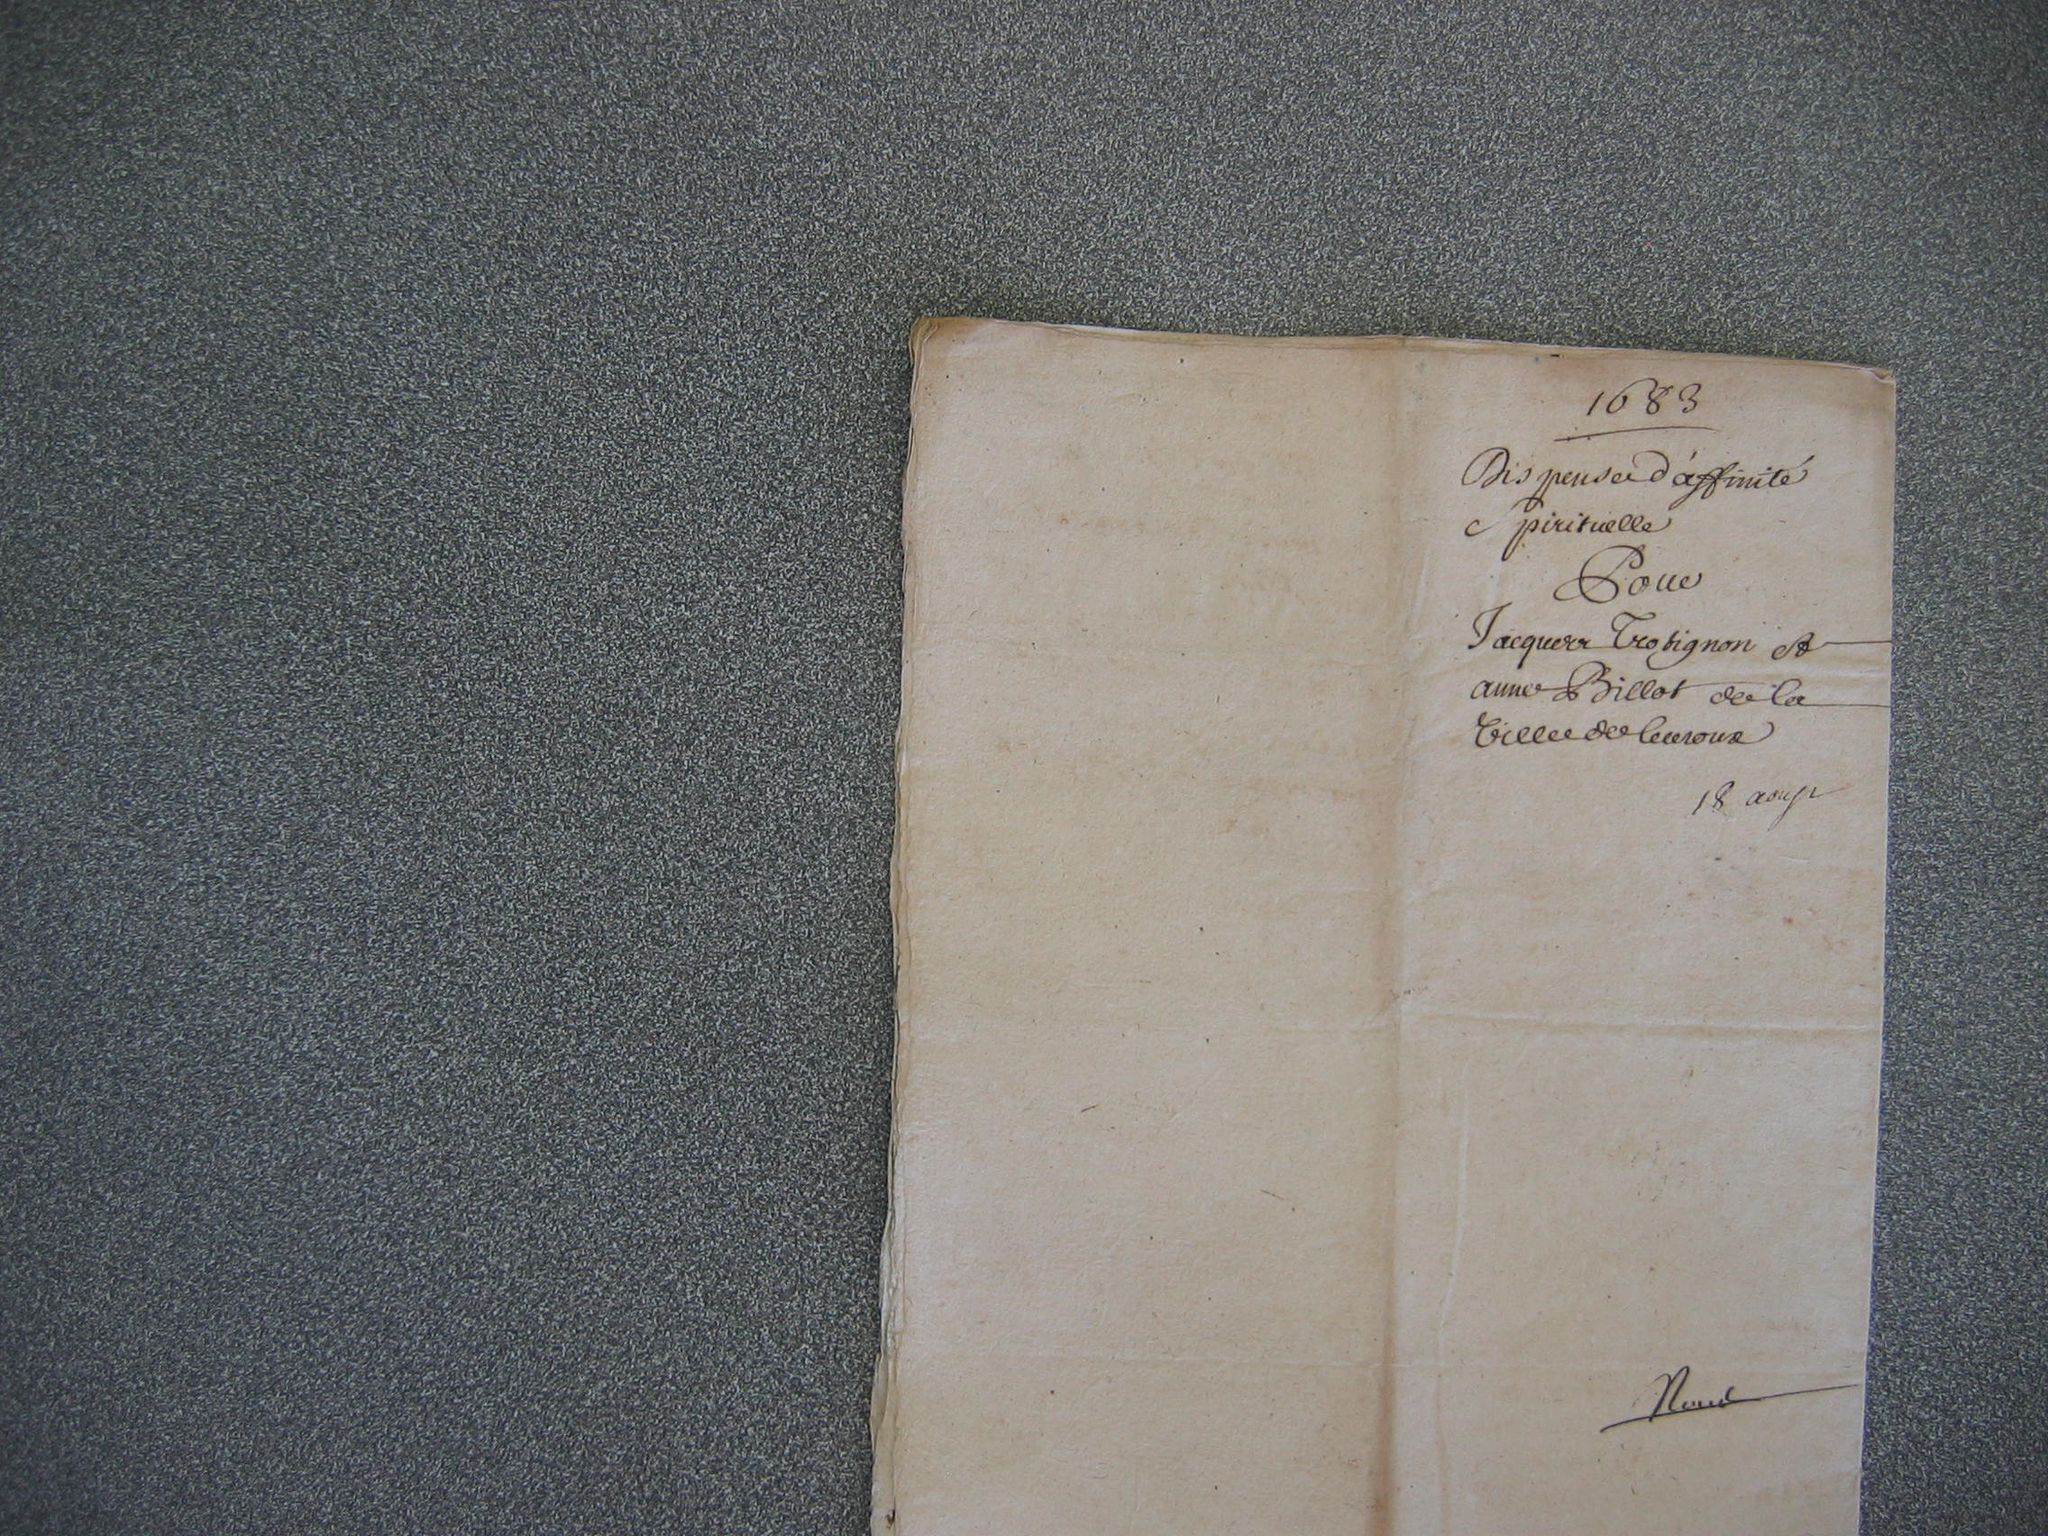 1683
Dispense d'affinité
spirituelle
Pour
Jacques Trotignon et
anne Billot de la
Ville de leuroux
18 aoust